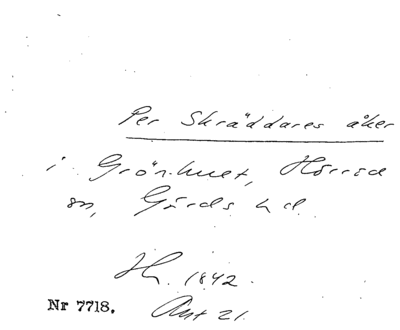 Per Skräddares åker
i Grönhuet, Hörröd
sn, Gärds hd.
Jh. 1842.
Nr 7718. Akt 21.